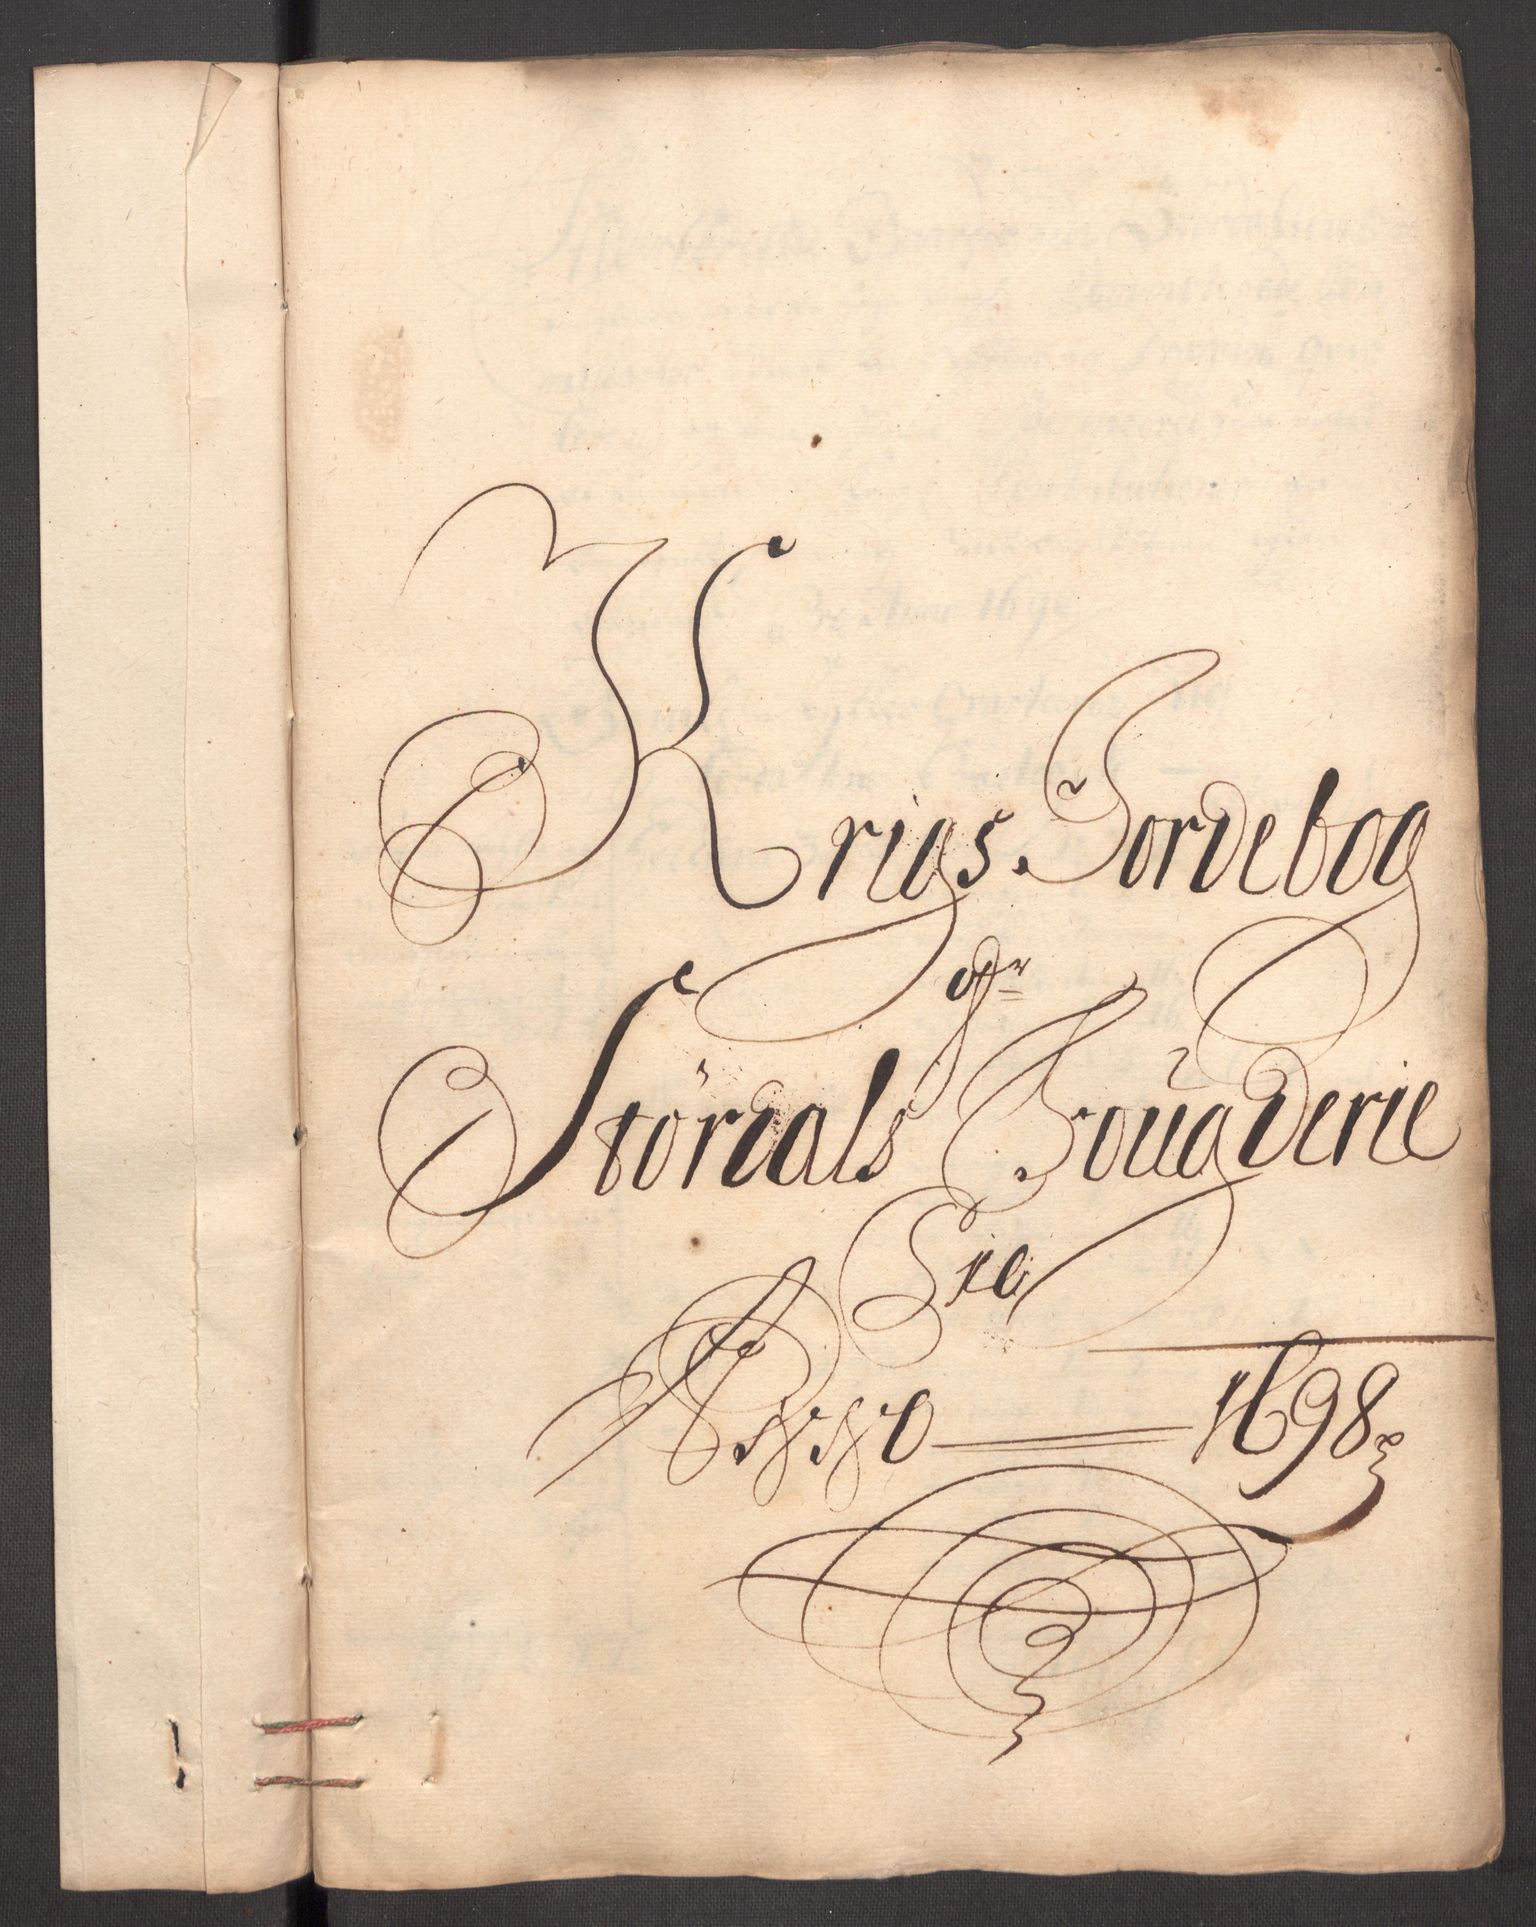 Krigs Jordebog
ofr
Stördals Fougderie
Pro
Anno 1698